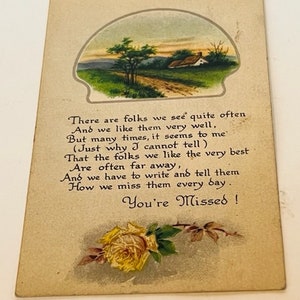 There are folks we see quite often
And we like them very well,
But many times, it seems to me
(Just why I cannot tell)
That the folks we like the very best
Are often far away,
And we have to write and tell them
How we miss them every day.
You're Missed!